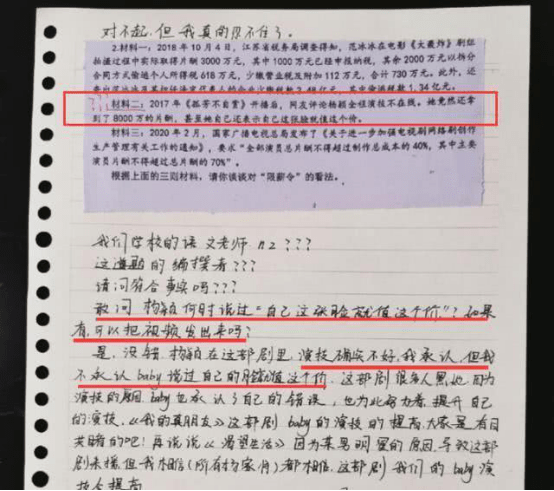 对不起,但我真的忍不住了。
2.材料一:2018年10月4日,江苏省税务局调查得知,范冰冰在电影《大轰炸》剧组
拍摄过程中实际取得片酬3000万元,其中1000万元已经申报纳税,其余2000万以拆分
合同方式偷逃个人所得税618万元,少缴营业税及附加112万元,合计730万元。此外,还
1.34亿元。
???
材料二:2017年《孤芳不自赏》开播后,网友评论杨颖全程演技不在线。她竟然还拿
到了8000万的片酬,甚至她自己还表示自己这张脸就值这个价。
材料三:2020年2月,国家广播电视总局发布了《关于进一步加强电视剧网络剧创作
生产管理有关工作的通知》,要求“全部演员总片酬不得超过制作总成本的40%,其中主要
演员片酬不得超过总片酬的70%”。
根据上面的三则材料,请你谈谈对“限薪令”的看法。
我们学校的语文老师nz???
这道题的编撰者???
请问符合事实吗???
敢问杨颖何时说过“自己这张脸就值这个价”?如果
有,可以把视频发出来吗?
是,没错,杨颖在这部剧里,演技确实不好,我承认,但我
不承认baby说过自己的脸就值这个价,这部剧很多人黑她因为
演技的原因,baby也承认了自己的错误,也为此努力着,提升自己
的演技,《我的真朋友》这部剧baby的演技的提高大家是有目
共睹的吧!再说说《渴望生活》因为某男明星的原因,导致这部
剧未播,但我相信(所有杨家军)都相信,这部剧我们的baby演
技会提高